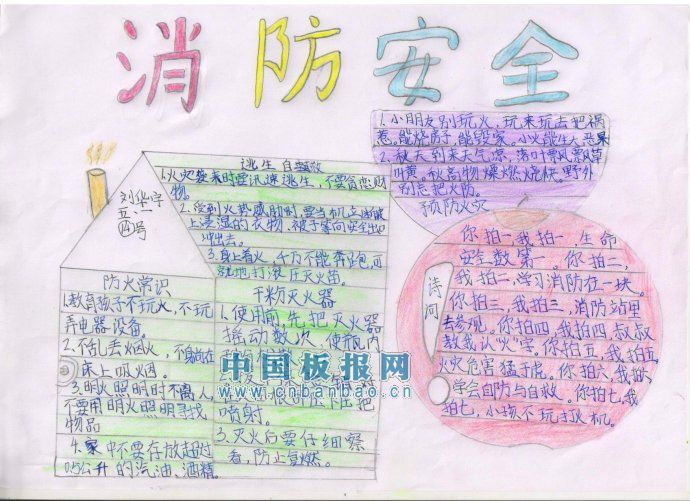 消防安全
1.小朋友别玩火,玩来玩去把祸
惹,能烧房子,能毁家。小火能生大恶果
2.秋天到来天气凉,落叶飘飘草
叫黄。秋高物燥燃烧快。野外
别忘把火防。
预防火灾
逃生自救
1.火灾袭来时要迅速逃生,不要贪恋财
物。
2.受到火势威胁时,要当机立断披
上浸湿的衣物、被子等向安全出口
冲出去。
3.身上着火,千万不能奔跑,可
就地打滚压灭火苗。
刘华宇
五
14号
防火常识
1.教育孩子不玩火,不玩
弄电器设备。
2.不乱丢烟火,不躺在
床上吸烟。
3.明火照明时不离人,
不要用明火照明寻找
物品
4.家中不要存放超过
0.5公升的汽油、酒精
干粉灭火器
1.使用前,先把灭火器
摇动数次,使瓶内
压把
喷射。
3.灭火后要仔细察
看,防止复燃。
诗词
你拍一,我拍一,生命
安全数第一。你拍二,
我拍二,学习消防在一块。
你拍三,我拍三,消防站里
去参观。你拍四,我拍四,叔叔
教我认“火”字。你拍五,我拍五,
火灾危害猛于虎。你拍六,我拍六
学会自防与自救。你拍七,我
拍七,小孩不玩打火机。
中国板报网
www.cnbanbao.cn